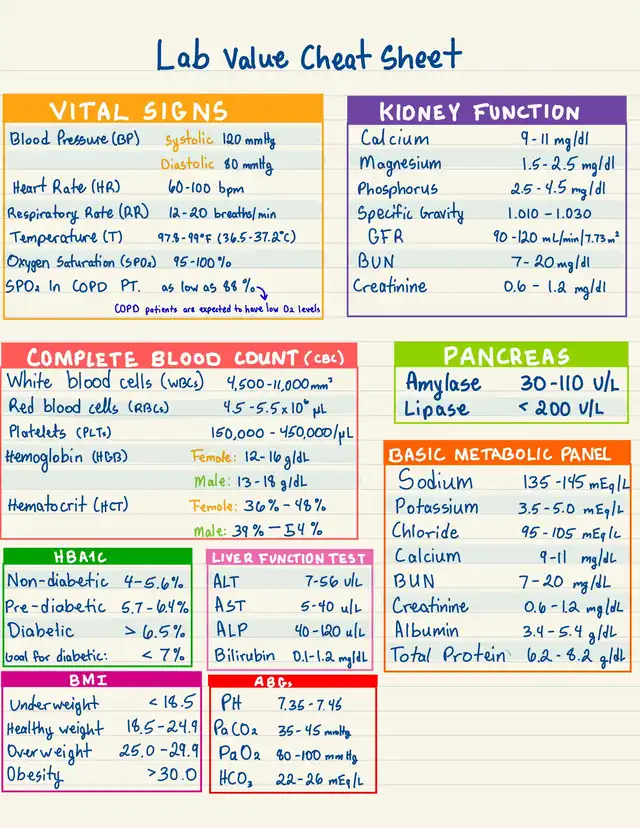 Lab Value Cheat Sheet
VITAL SIGNS
Blood Pressure (BP) Systolic 120 mmHg
Diastolic 80 mmHg
Heart Rate (HR) 60-100 bpm
Respiratory Rate (RR) 12-20 breaths/min
Temperature (T) 97.8-99°F (36.5-37.2°C)
Oxygen Saturation (SPO2) 95-100%
SPO2 In COPD PT. as low as 88%
COPD patients are expected to have low O2 levels
KIDNEY FUNCTION
Calcium 9-11 mg/dl
Magnesium 1.5-2.5 mg/dl
Phosphorus 2.5-4.5 mg/dl
Specific Gravity 1.010-1.030
GFR 90-120 mL/min/7.73m²
BUN 7-20 mg/dl
Creatinine 0.6-1.2 mg/dl
COMPLETE BLOOD COUNT (CBC)
White blood cells (WBCs) 4,500-11,000 mm³
Red blood cells (RBCs) 4.5-5.5x10⁶ μL
Platelets (PLTs) 150,000-450,000/μL
Hemoglobin (HGB) Female: 12-16 g/dL
Male: 13-18 g/dL
Hematocrit (HCT) Female: 36%-48%
Male: 39%-54%
PANCREAS
Amylase 30-110 U/L
Lipase < 200 U/L
BASIC METABOLIC PANEL
Sodium 135-145 mEq/L
Potassium 3.5-5.0 mEq/L
Chloride 95-105 mEq/L
Calcium 9-11 mg/dL
BUN 7-20 mg/dL
Creatinine 0.6-1.2 mg/dL
Albumin 3.4-5.4 g/dL
Total Protein 6.2-8.2 g/dL
HBA1C
Non-diabetic 4-5.6%
Pre-diabetic 5.7-6.4%
Diabetic > 6.5%
Goal for diabetic: < 7%
LIVER FUNCTION TEST
ALT 7-56 U/L
AST 5-40 U/L
ALP 40-120 U/L
Bilirubin 0.1-1.2 mg/dL
BMI
Underweight < 18.5
Healthy weight 18.5-24.9
Overweight 25.0-29.9
Obesity >30.0
ABGs
PH 7.35-7.45
PaCO2 35-45 mmHg
PaO2 80-100 mmHg
HCO3 22-26 mEq/L